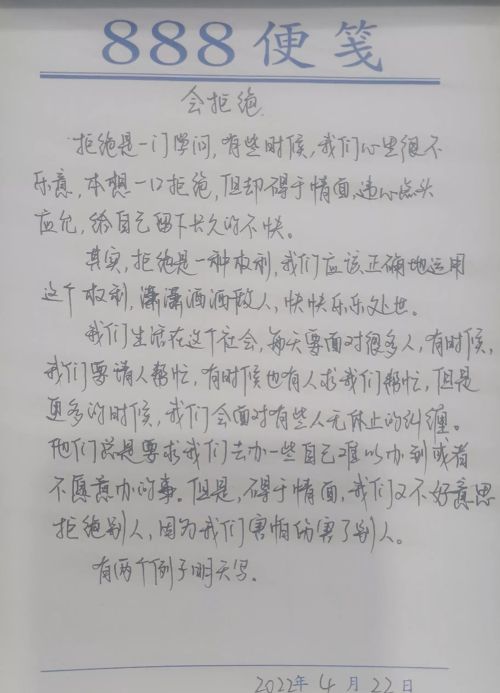 888便笺
会拒绝
拒绝是一门学问,有些时候,我们心里很不
乐意,本想一口拒绝,但却碍于情面,违心点头
应允,给自己留下长久的不快。
其实,拒绝是一种权利,我们应该正确地运用
这个权利,潇潇洒洒做人,快快乐乐处世。
我们生活在这个社会,每天要面对很多人,有时候,
我们要请人帮忙,有时候也有人求我们帮忙,但是
更多的时候,我们会面对有些人无休止的纠缠。
他们总是要求我们去办一些自己难以办到或者
不愿意办的事。但是,碍于情面,我们又不好意思
拒绝别人,因为我们害怕伤害了别人。
有两个例子明天写。
2022年4月22日